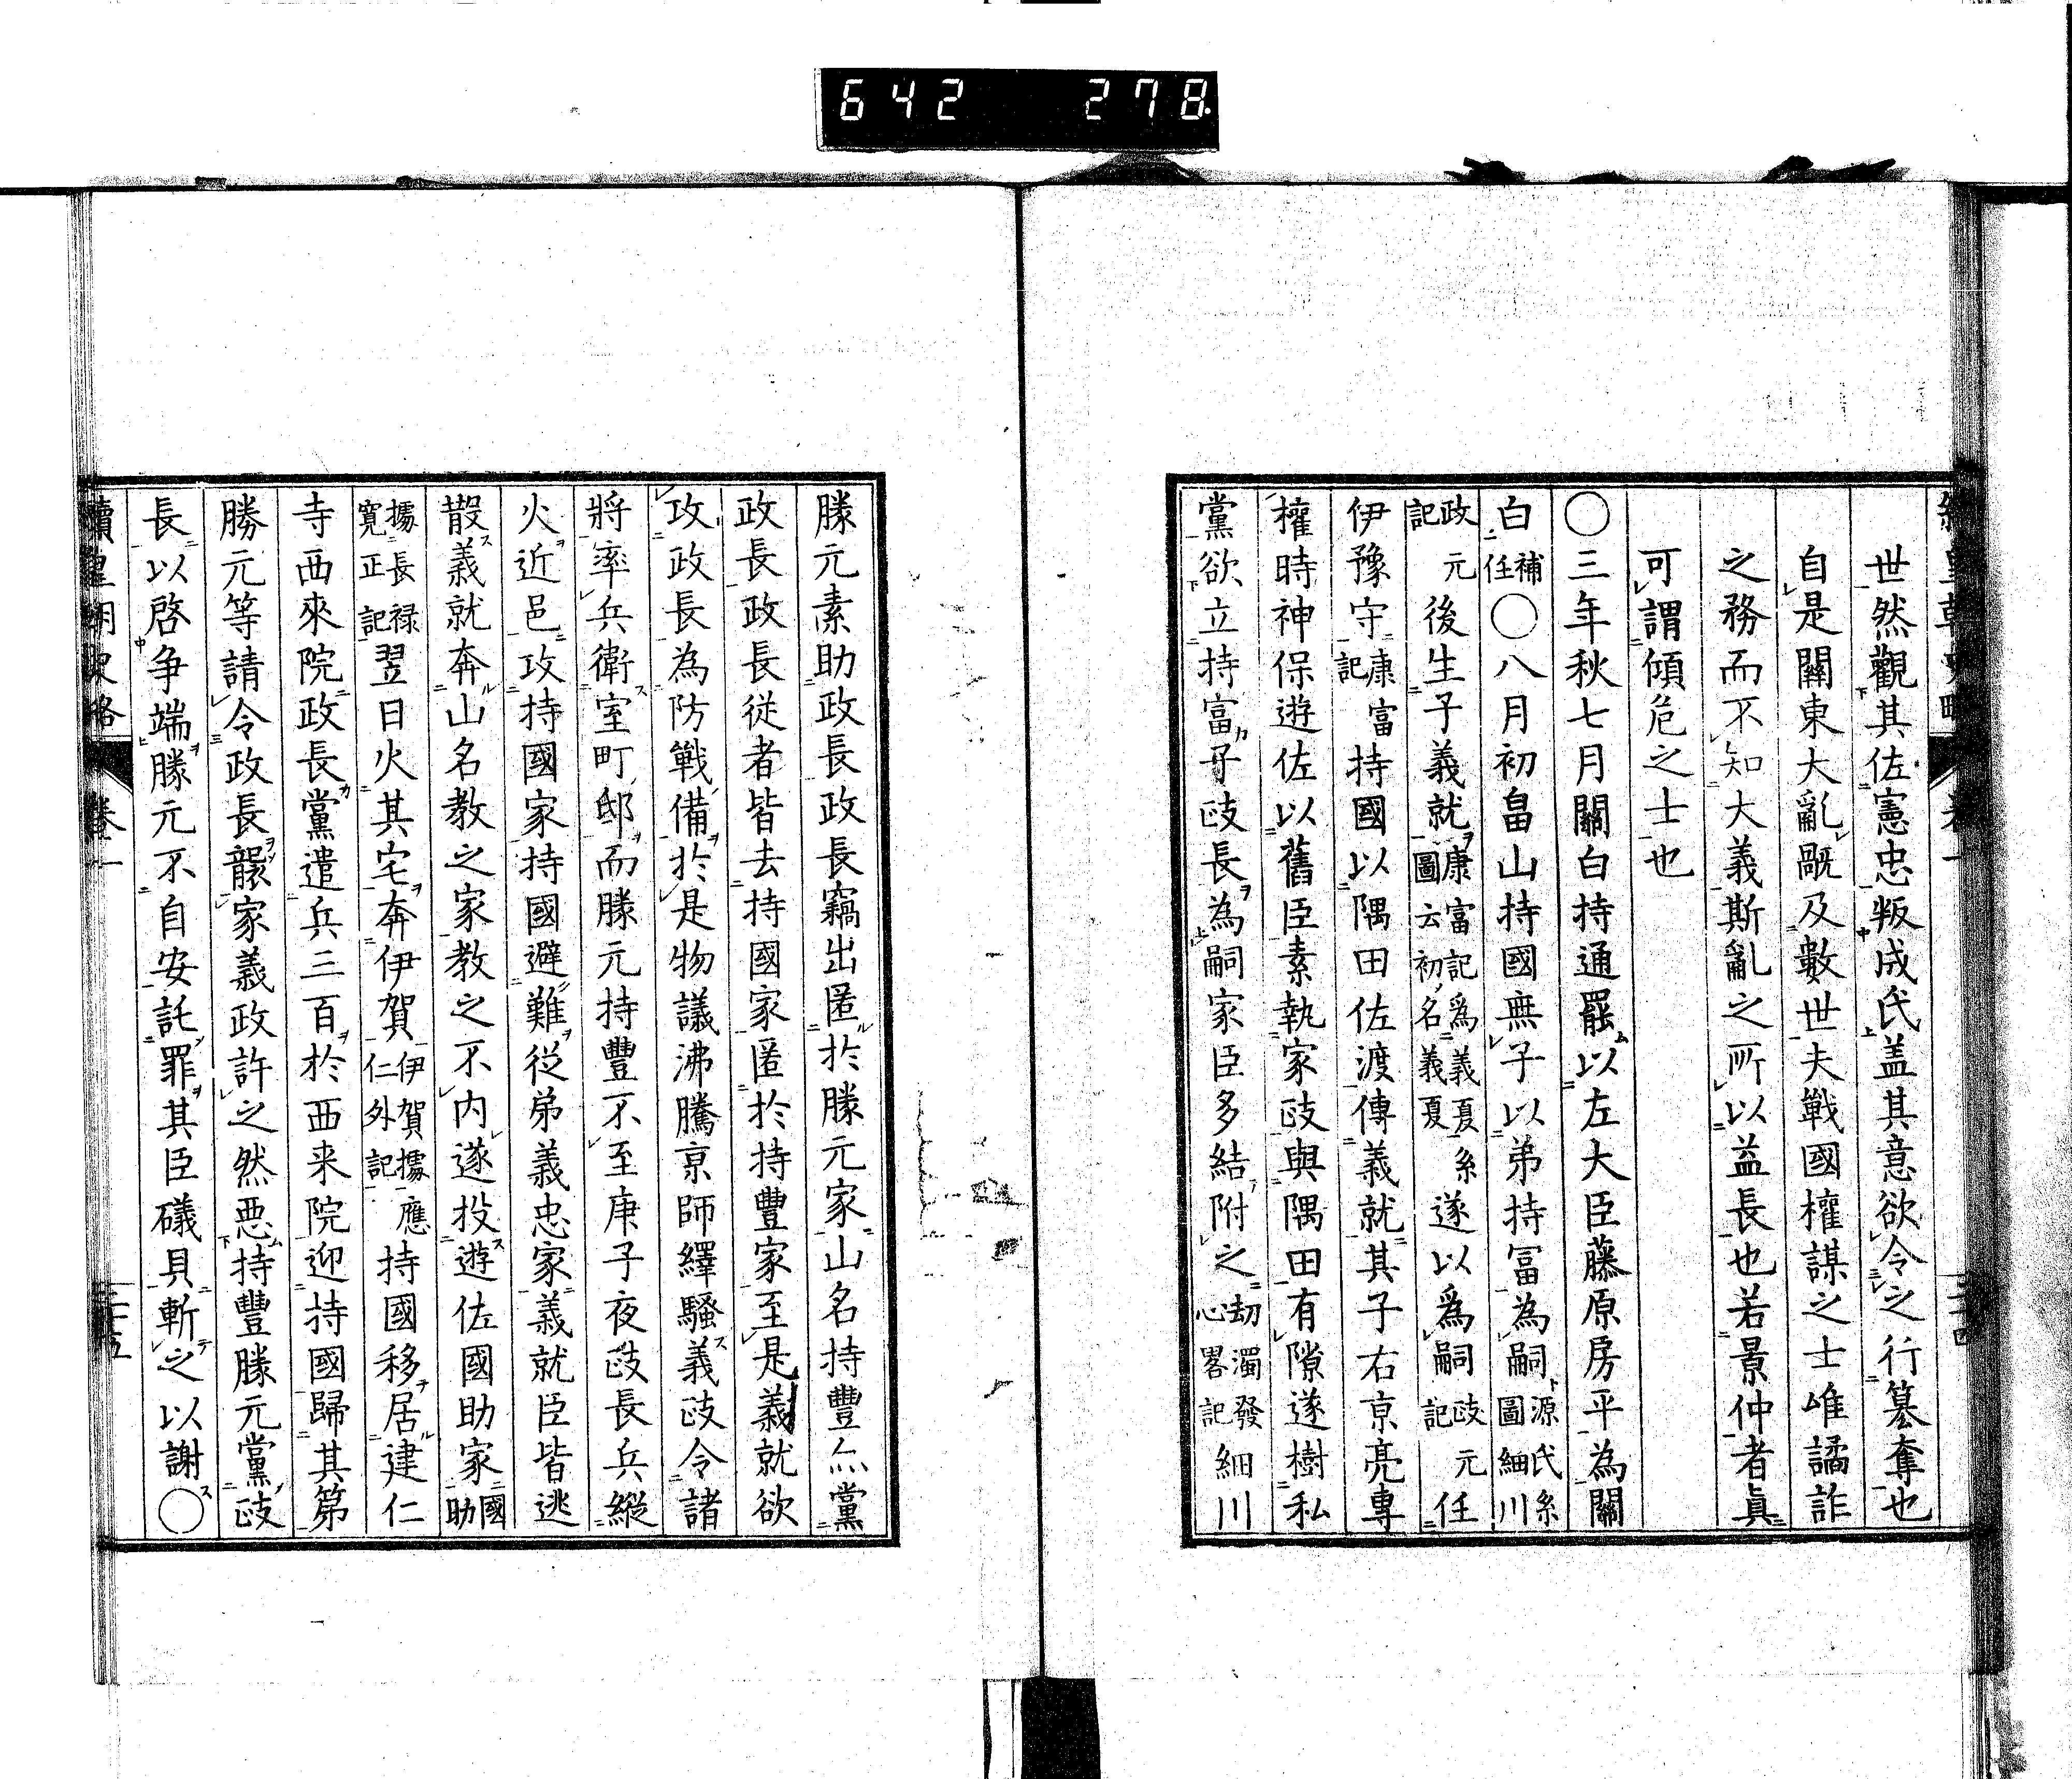 642 278
世然觀其佐憲忠叛成氏蓋其意欲令之行簒奪也
自是關東大亂厩及數世夫戰國權謀之士唯譎詐
之務而不知大義斯亂之所以益長也若景仲者眞
可謂傾危之士也
〇三年秋七月關白持通罷以左大臣藤原房平為關
白補任〇八月初畠山持國無子以弟持冨為嗣源氏系圖細川
政元記後生子義就康富記爲義夏系圖云初名義夏遂以爲嗣政元任記
伊豫守康富記持國以隅田佐渡傳義就其子右京亮專
權時神保遊佐以舊臣素執家政與隅田有隙遂樹私
黨欲立持富子政長為嗣家臣多結附之刧濁發心畧記細川
勝元素助政長政長竊出匿於勝元家山名持豐亦黨
政長政長從者皆去持國家匿於持豐家至是義就欲
攻政長為防戰備於是物議沸騰京師繹騷義政令諸
將率兵衛室町邸而勝元持豐不至庚子夜政長兵縱
火近邑攻持國家持國避難從弟義忠家義就臣皆逃
散義就奔山名教之家教之不内遂投遊佐國助家國助
據長禄寬正記翌日火其宅奔伊賀伊賀據應仁外記持國移居建仁
寺西來院政長黨遣兵三百於西来院迎持國歸其第
勝元等請令政長襲家義政許之然惡持豐勝元黨政
長以啓争端勝元不自安託罪其臣礒貝斬之以謝〇
續皇朝史略 卷一 二十五